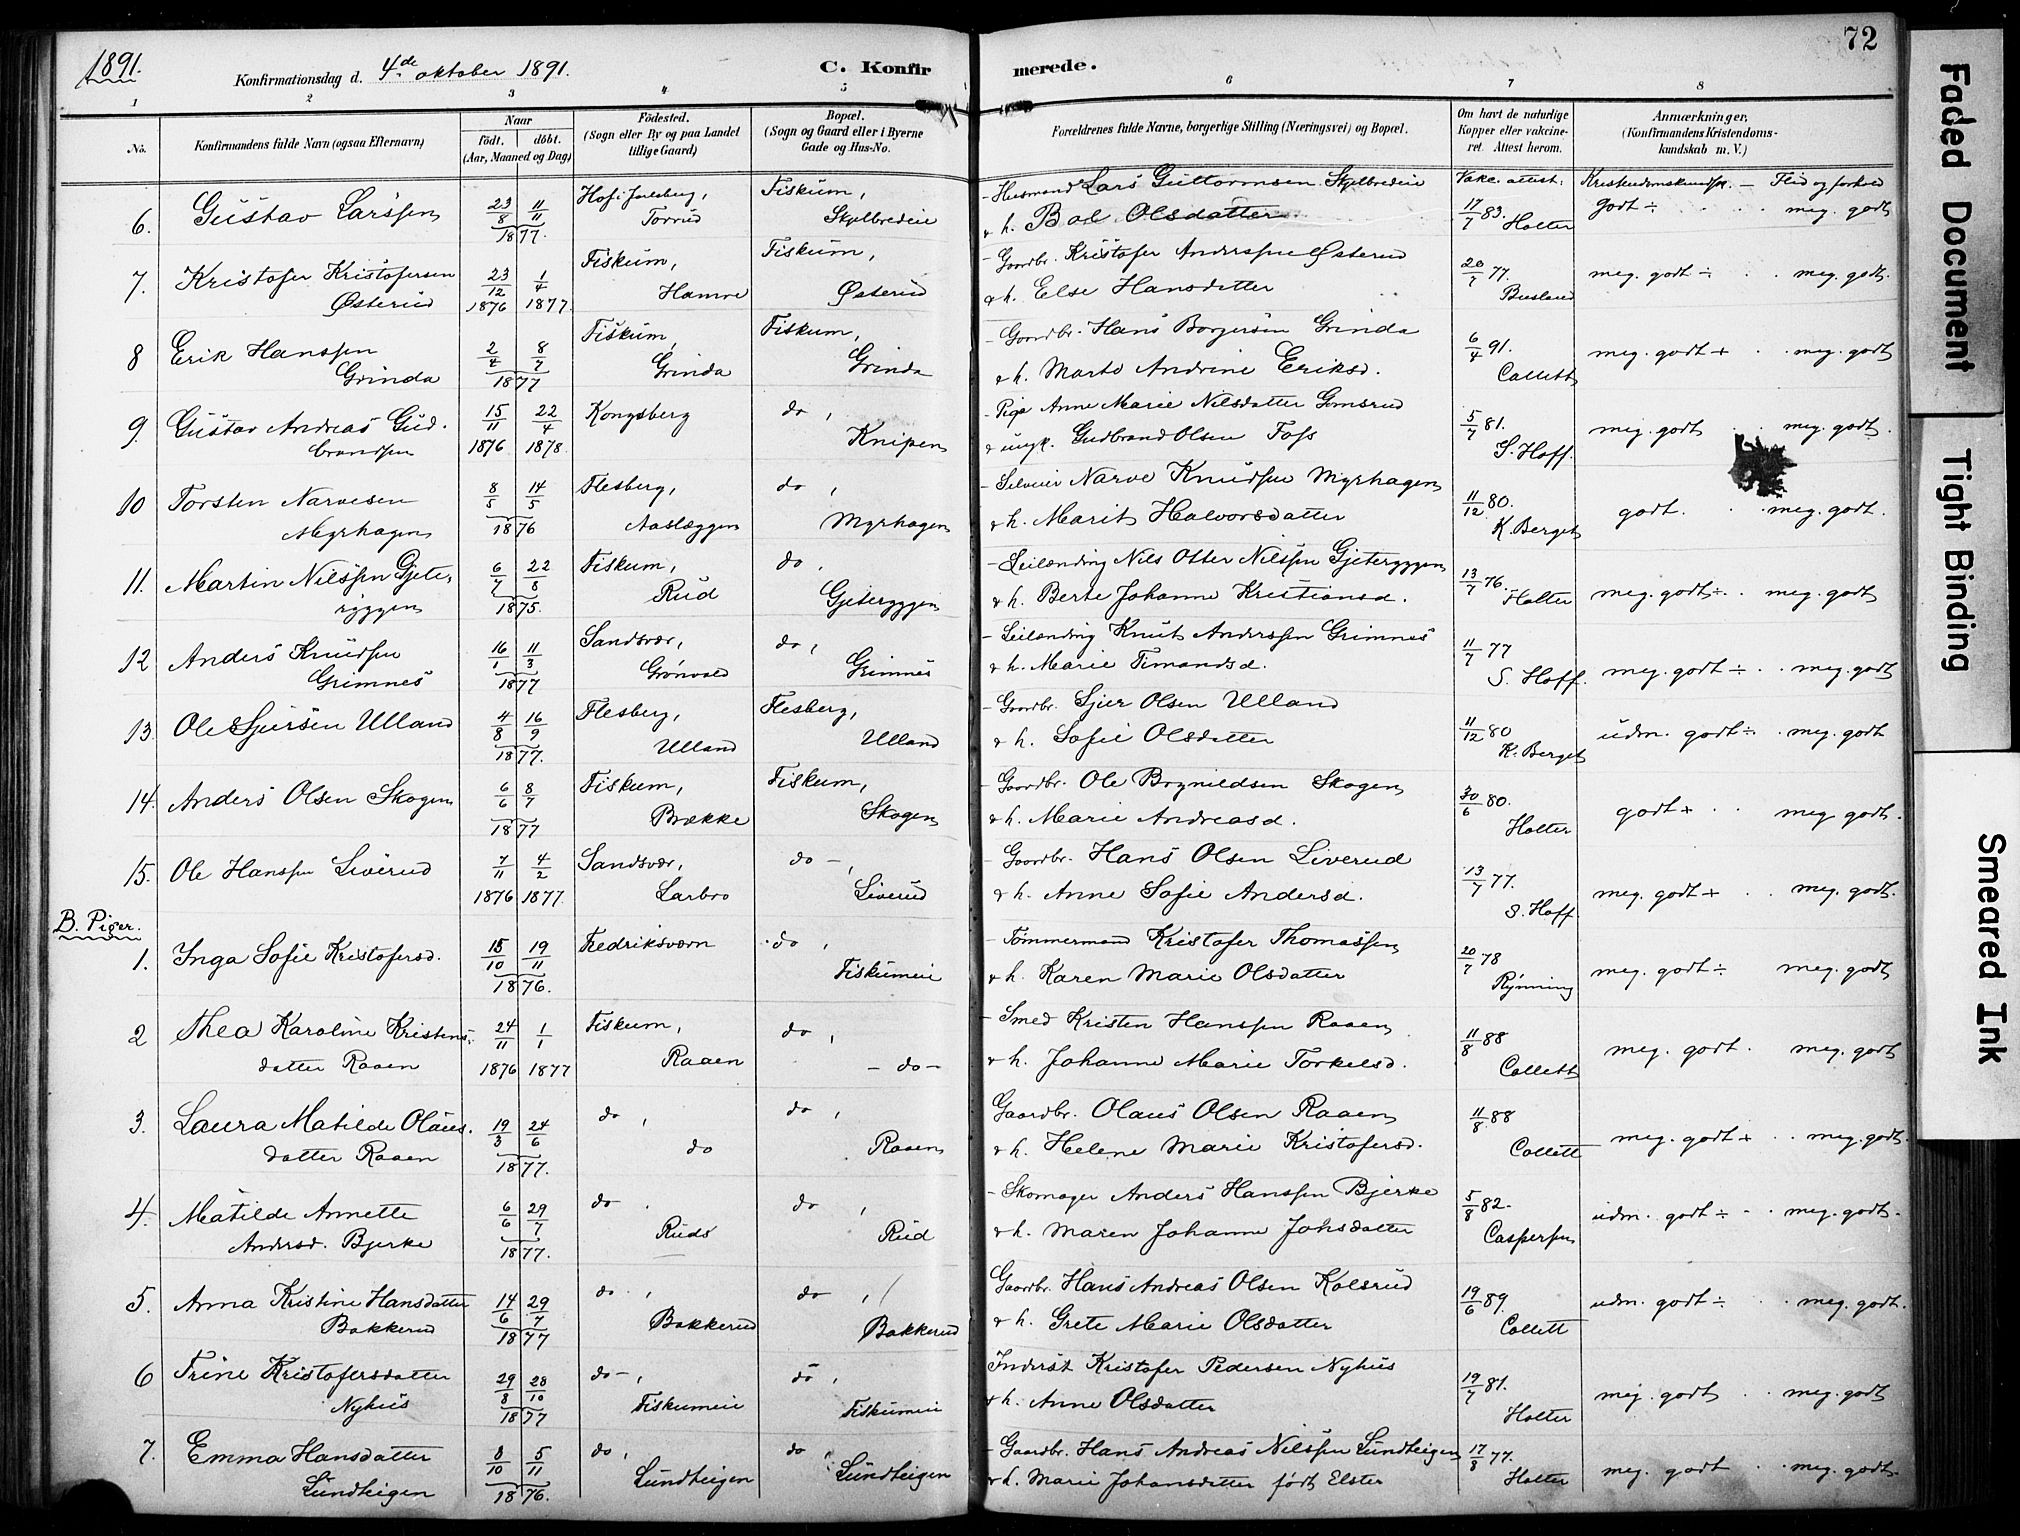 1891.
Konfirmationsdag d. 4de oktober 1891.
C. Konfirmerede.
72
1 2 3 4 5 6 7 8
No.
Konfirmandens fulde Navn (ogsaa Efternavn)
Naar
födt. döbt.
(Aar, Maaned og Dag)
Födested.
(Sogn eller By og paa Landet tillige Gaard)
Bopæl.
(Sogn og Gaard eller i Byerne Gade og Hus-No.
Forældrenes fulde Navne, borgerlige Stilling (Næringsvei) og Bopæl.
Om havt de naturlige Kopper eller vakcineret. Attest herom.
Anmærkninger.
(Konfirmandens Kristendomskundskab m. V.)
Vakc. attest: Kristendomskundsk. – Flid og forhold
6. Gustav Larssen 23/8 11/11 1877. Hof i Jarlsberg, Torrud Fiskum, Skjelbredeie
- Husmand Lars Guttormsen Skjelbredeie
& h. Bol Olsdatter. 17/7 83. Holter godt ÷ meg. godt
7. Kristofer Kristofersen Østerud 23/12 1876 1/4 1877. Fiskum, Hamre Fiskum, Østerud
- Gaardbr. Kristofer Anderssen Østerud
& h. Else Hansdatter 20/7 77. Busland meg. godt ÷ meg. godt.
8 Erik Hanssen Grinda 2/4 8/7 1877 Fiskum, Grinda Fiskum, Grinda
- Gaardbr. Hans Borgersen Grinda
& h. Marte Andrine Eriksd. 6/4 91. Collett meg. godt + meg. godt
9. Gustav Andreas Gudbrandsen 15/11 1876 22/4 1878. Kongsberg do, Knipen
- Pige Anne Marie Nilsdatter Gomsrud
& ungk. Gudbrand Olsen Foss 5/7 81. S. Hoff. meg. godt meg. godt.
10 Torsten Narvesen Myrhagen 8/5 14/5 1876 Flesberg, Aaslæggen do, Myrhagen
- Selveier Narve Knudsen Myrhagen
& h. Marit Halvorsdatter 11/12 80. K. Berget godt. meg. godt.
11. Martin Nilssen Gjeteryggen 6/7 22/8 1875. Fiskum, Rud do. Gjeteryggen
- Leilending Nils Otter Nilssen Gjeteryggen
& h. Berte Johanne Kristiansd. 13/7 76. Holter meg. godt ÷ meg. godt
12 Anders Knudsen Grimnes 16/1 11/3 1877 Sandsvær, Grønvold do, Grimnes
- Leilending Knut Anderssen Grimnes
& h. Marie Timandsd. 11/7 77 S. Hoff. meg. godt ÷ meg. godt
13 Ole Sjursen Ulland 4/8 16/9 1877. Flesberg, Ulland Flesberg, Ulland
- Gaardbr. Sjur Olsen Ulland
& h. Sofie Olsdatter 11/12 80 K. Berget udm. godt ÷ meg. godt
14. Anders Olsen Skogen 6/6 8/7 1877 Fiskum, Brække Fiskum, Skogen
- Gaardbr. Ole Brynildsen Skogen
& h. Marie Andreasd. 30/6 80. Holter godt + meg. godt.
15. Ole Hanssen Liverud 7/11 1876 4/2 1877. Sandsvær, Larbro do –, Liverud
- Gaardbr. Hans Olsen Liverud
& h. Anne Sofie Andersd. 13/7 77. S. Hoff. meg. godt + meg. godt.
B. Piger.
1. Inga Sofie Kristofersd. 15/10 19/11 1876. Fredriksværn do, Fiskumeie
- Tømmermand Kristofer Thomassen
& h. Karen Marie Olsdatter 20/7 78 Rynning meg. godt ÷ meg. godt
2 Thea Karoline Kristensdatter Raaen 24/11 1876 1/1 1877 Fiskum, Raaen do, – do –
- Smed Kristen Hanssen Raaen
& h. Johanne Marie Torkelsd. 11/8 88 Collett meg. godt. meg. godt
3. Laura Matilde Olausdatter Raaen 19/3 24/6 1877. do, do do, Raaen
Gaardbr. Olaus Olsen Raaen
& h. Helene Marie Kristofersd. 11/8 88 Collett meg. godt + meg. godt.
4. Matilde Annette Andersd. Bjerke 6/6 29/7 1877. do. Ruds do, Rud
- Skomager Anders Hanssen Bjerke
& h. Maren Johanne Johsdatter 5/8 82. Caspersen udm. godt ÷ meg. godt.
5. Anna Kristine Hansdatter Bakkerud 14/6 29/7 1877 do, Bakkerud do, Bakkerud
Gaardbr. Hans Andreas Olsen Kolsrud
& h. Grete Marie Olsdatter 19/6 89. Collett udm. godt ÷ meg. godt.
6 Trine Kristofersdatter Nyhus 29/8 28/10 1877 do –, Fiskumeie do, Fiskumeie
Inderst Kristofer Pedersen Nyhus
& h. Anne Olsdatter 19/7 81. Holter meg. godt meg. godt
7. Emma Hansdatter Lundteigen 8/10 5/11 1876. do, Lundteigen do, Lundteigen
- Gaardbr. Hans Andreas Nilssen Lundteigen
& h. Marie Johansdatter født Elster 17/8 77. Holter meg. godt meg. godt.
Faded Document
Tight Binding
Smeared Ink